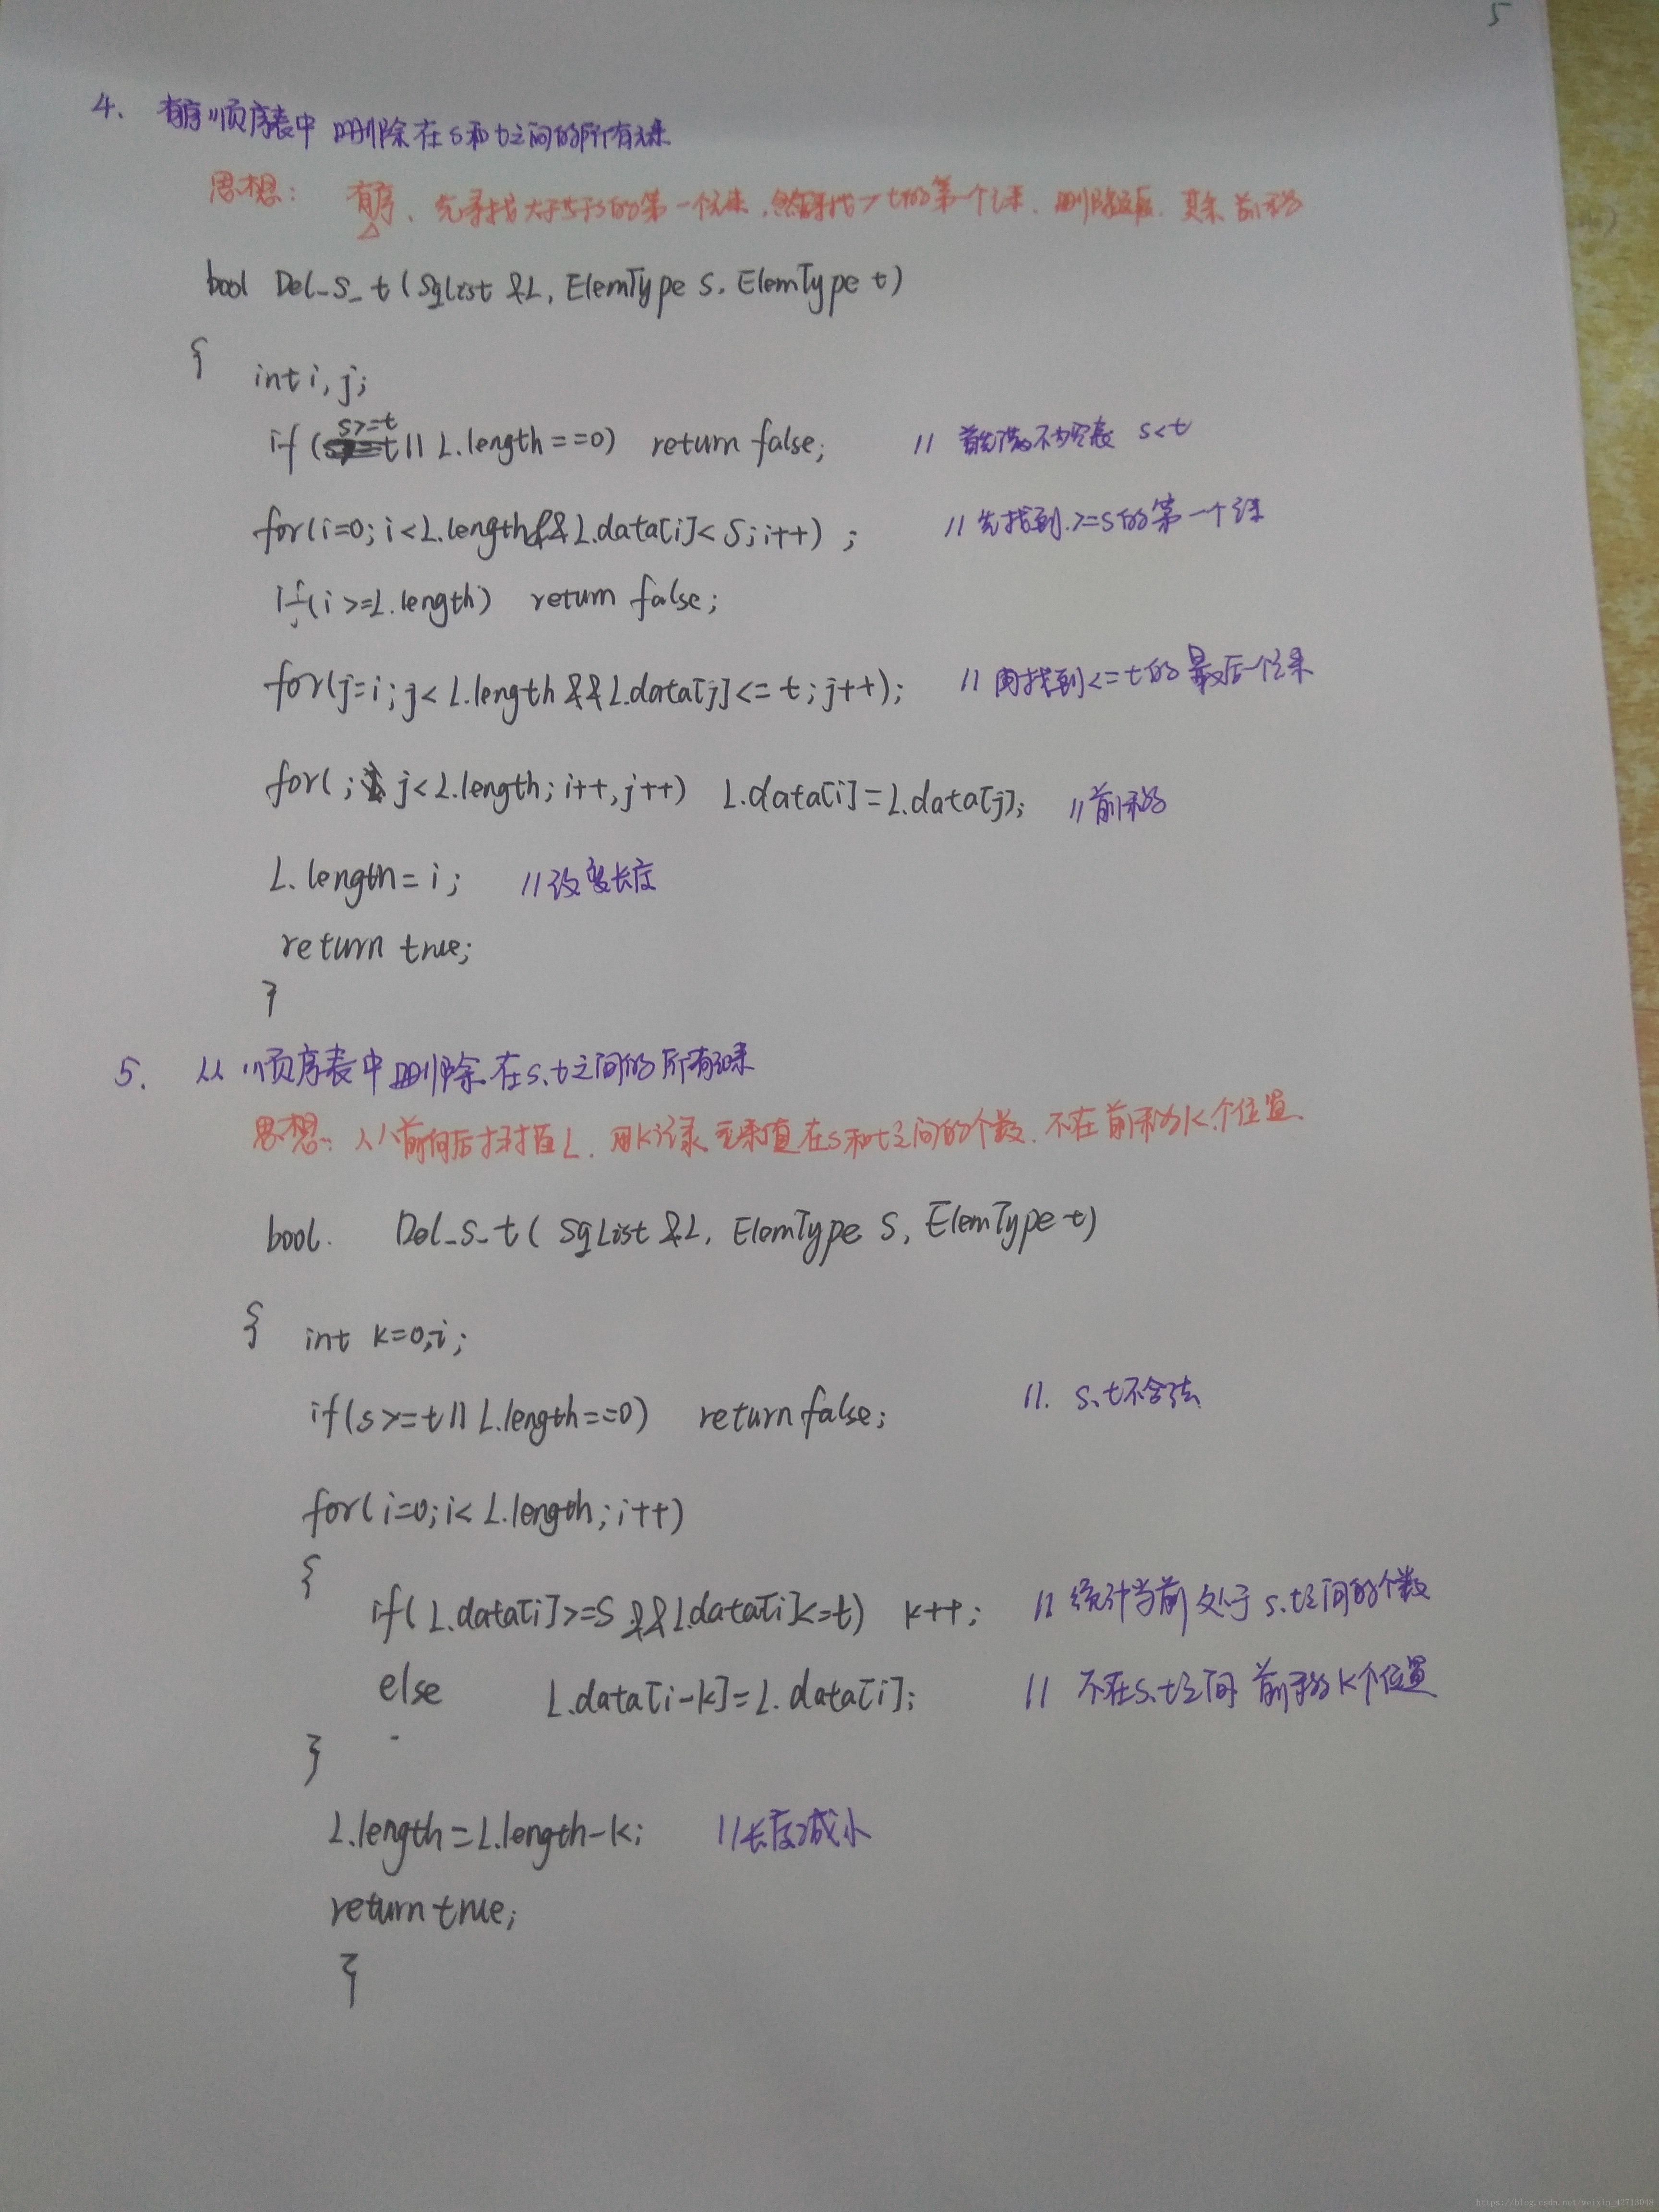 5
4. 有序顺序表中删除在s和t之间的所有元素
思想: 有序、先寻找大于等于s的第一个元素,然后寻找>t的第一个元素.删除这段.其余前移
bool Del_s_t(SqList &L, ElemType s, ElemType t)
{
int i, j;
if(s>=t || L.length==0) return false; // 首先 不为空表 s<t
for(i=0; i<L.length&&L.data[i]<s; i++) ; // 先找到.>=s的第一个元素
if(i>=L.length) return false;
for(j=i; j<L.length&&L.data[j]<=t; j++); // 再找到<=t的最后一个元素
for(; j<L.length; i++, j++) L.data[i]=L.data[j]; //前移
L.length=i; //改变长度
return true;
}
5. 从顺序表中删除在s、t之间的所有元素
思想: 从前向后扫描L.用k记录元素值在s和t之间的个数.不在前移k个位置.
bool. Del_s_t(SqList &L, ElemType s, ElemType t)
{ int k=0,i;
if(s>=t || L.length==0) return false; //. s、t不合法
for(i=0; i<L.length; i++)
{
if(L.data[i]>=s &&L.data[i]<=t) k++; // 统计当前处于s、t之间的个数
else L.data[i-k]=L.data[i]; // 不在s、t之间 前移k个位置
}
L.length=L.length-k; //长度减小
return true;
}
https://blog.csdn.net/weixin_42713046